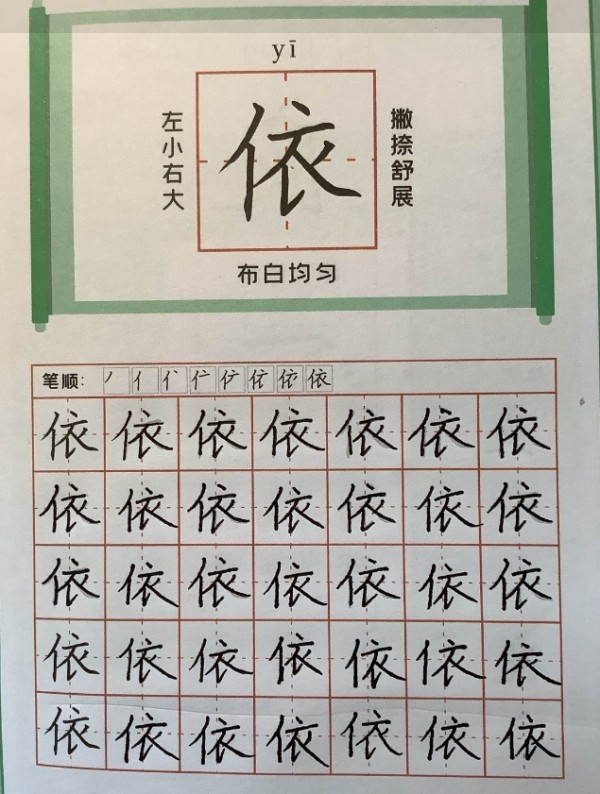 yī
左小右大
依
撇捺舒展
布白均匀
笔顺: 丿 亻 依
依 依 依 依 依 依 依
依 依 依 依 依 依 依
依 依 依 依 依 依 依
依 依 依 依 依 依 依
依 依 依 依 依 依 依